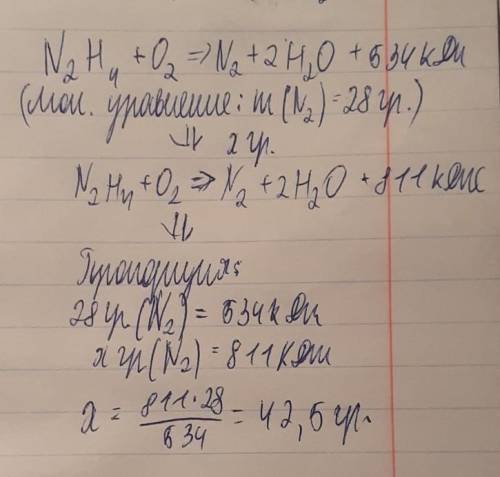 N₂H₄ + O₂ ⇒ N₂ + 2H₂O + 534 кДж
(Мол. уравнение: m(N₂) = 28 гр.)
⇓ x гр.
N₂H₄ + O₂ ⇒ N₂ + 2H₂O + 811 кДж
⇓
Пропорция:
28 гр (N₂) = 534 кДж
x гр (N₂) = 811 кДж
x = 811·28/534 = 42,5 гр.